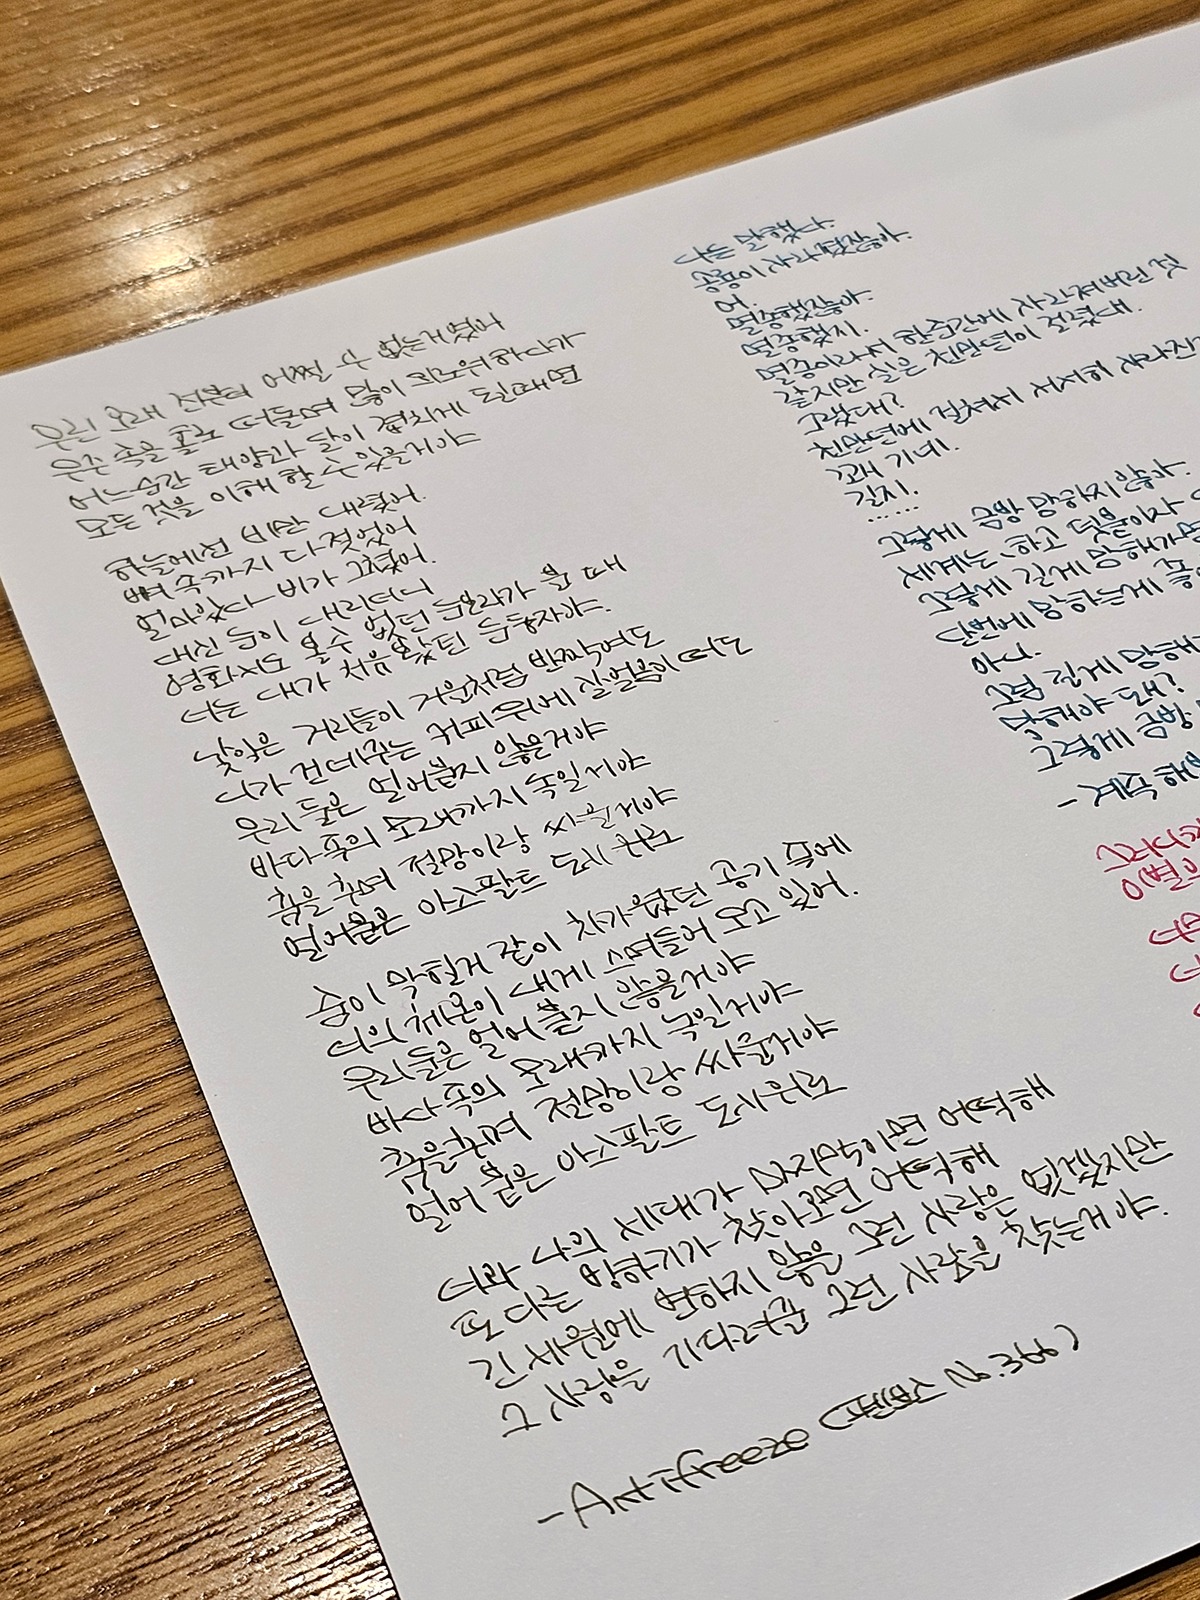 우린 오래 전부터 어쩔 수 없는거였어
우주 속을 홀로 떠돌며 많이 외로워하다가
어느순간 태양과 달이 겹치게 될때면
모든것을 이해 할 수 있을거야
하늘에선 비만 내렸어.
뼈 속까지 다 젖었어
얼마있다 비가 그쳤어.
대신 눈이 내리더니
영화서도 볼수 없던 눈보라가 불 때
너는 내가 처음봤던 눈동자야.
낯익은 거리들이 거울처럼 반짝여도
니가 건네주는 커피위에 살얼음이 떠도
우리 둘은 얼어붙지 않을거야
바다속의 모래까지 녹일거야
춤을 추며 절망이랑 싸울거야
얼어붙은 아스팔트 도시위로
숨이 막힐거 같이 차가웠던 공기 속에
너의 체온이 내게 스며들어 오고 있어.
우리둘은 얼어 붙지 않을거야
바다속의 모래까지 녹일거야
춤을추며 절망이랑 싸울거야
얼어 붙은 아스팔트 도시위로
너와 나의 세대가 마지막이면 어떡해
또 다른 빙하기가 찾아오면 어떡해
긴 세월에 변하지 않을 그런 사랑은 없겠지만
그 사랑을 기다려줄 그런 사람을 찾는거야.
-Antifreeze (No.366)
나는 말했다.
공룡이 사라졌잖아.
어.
멸종했잖아.
멸종했지.
멸종이라서 한순간에 사라져버린 것
같지만 실은 천만년이 걸렸대.
그랬대?
천만년에 걸쳐서 서서히 사라진
꽤 기네.
길지.
......
그렇게 금방 망하지 않아.
세계는, 하고 덧붙이자
그렇게 길게 망해가면
단번에 망하는게 좋
아니.
그럼 길게 망해
망해야 돼?
그렇게 금방
- 계속 해
그러다가
이별의